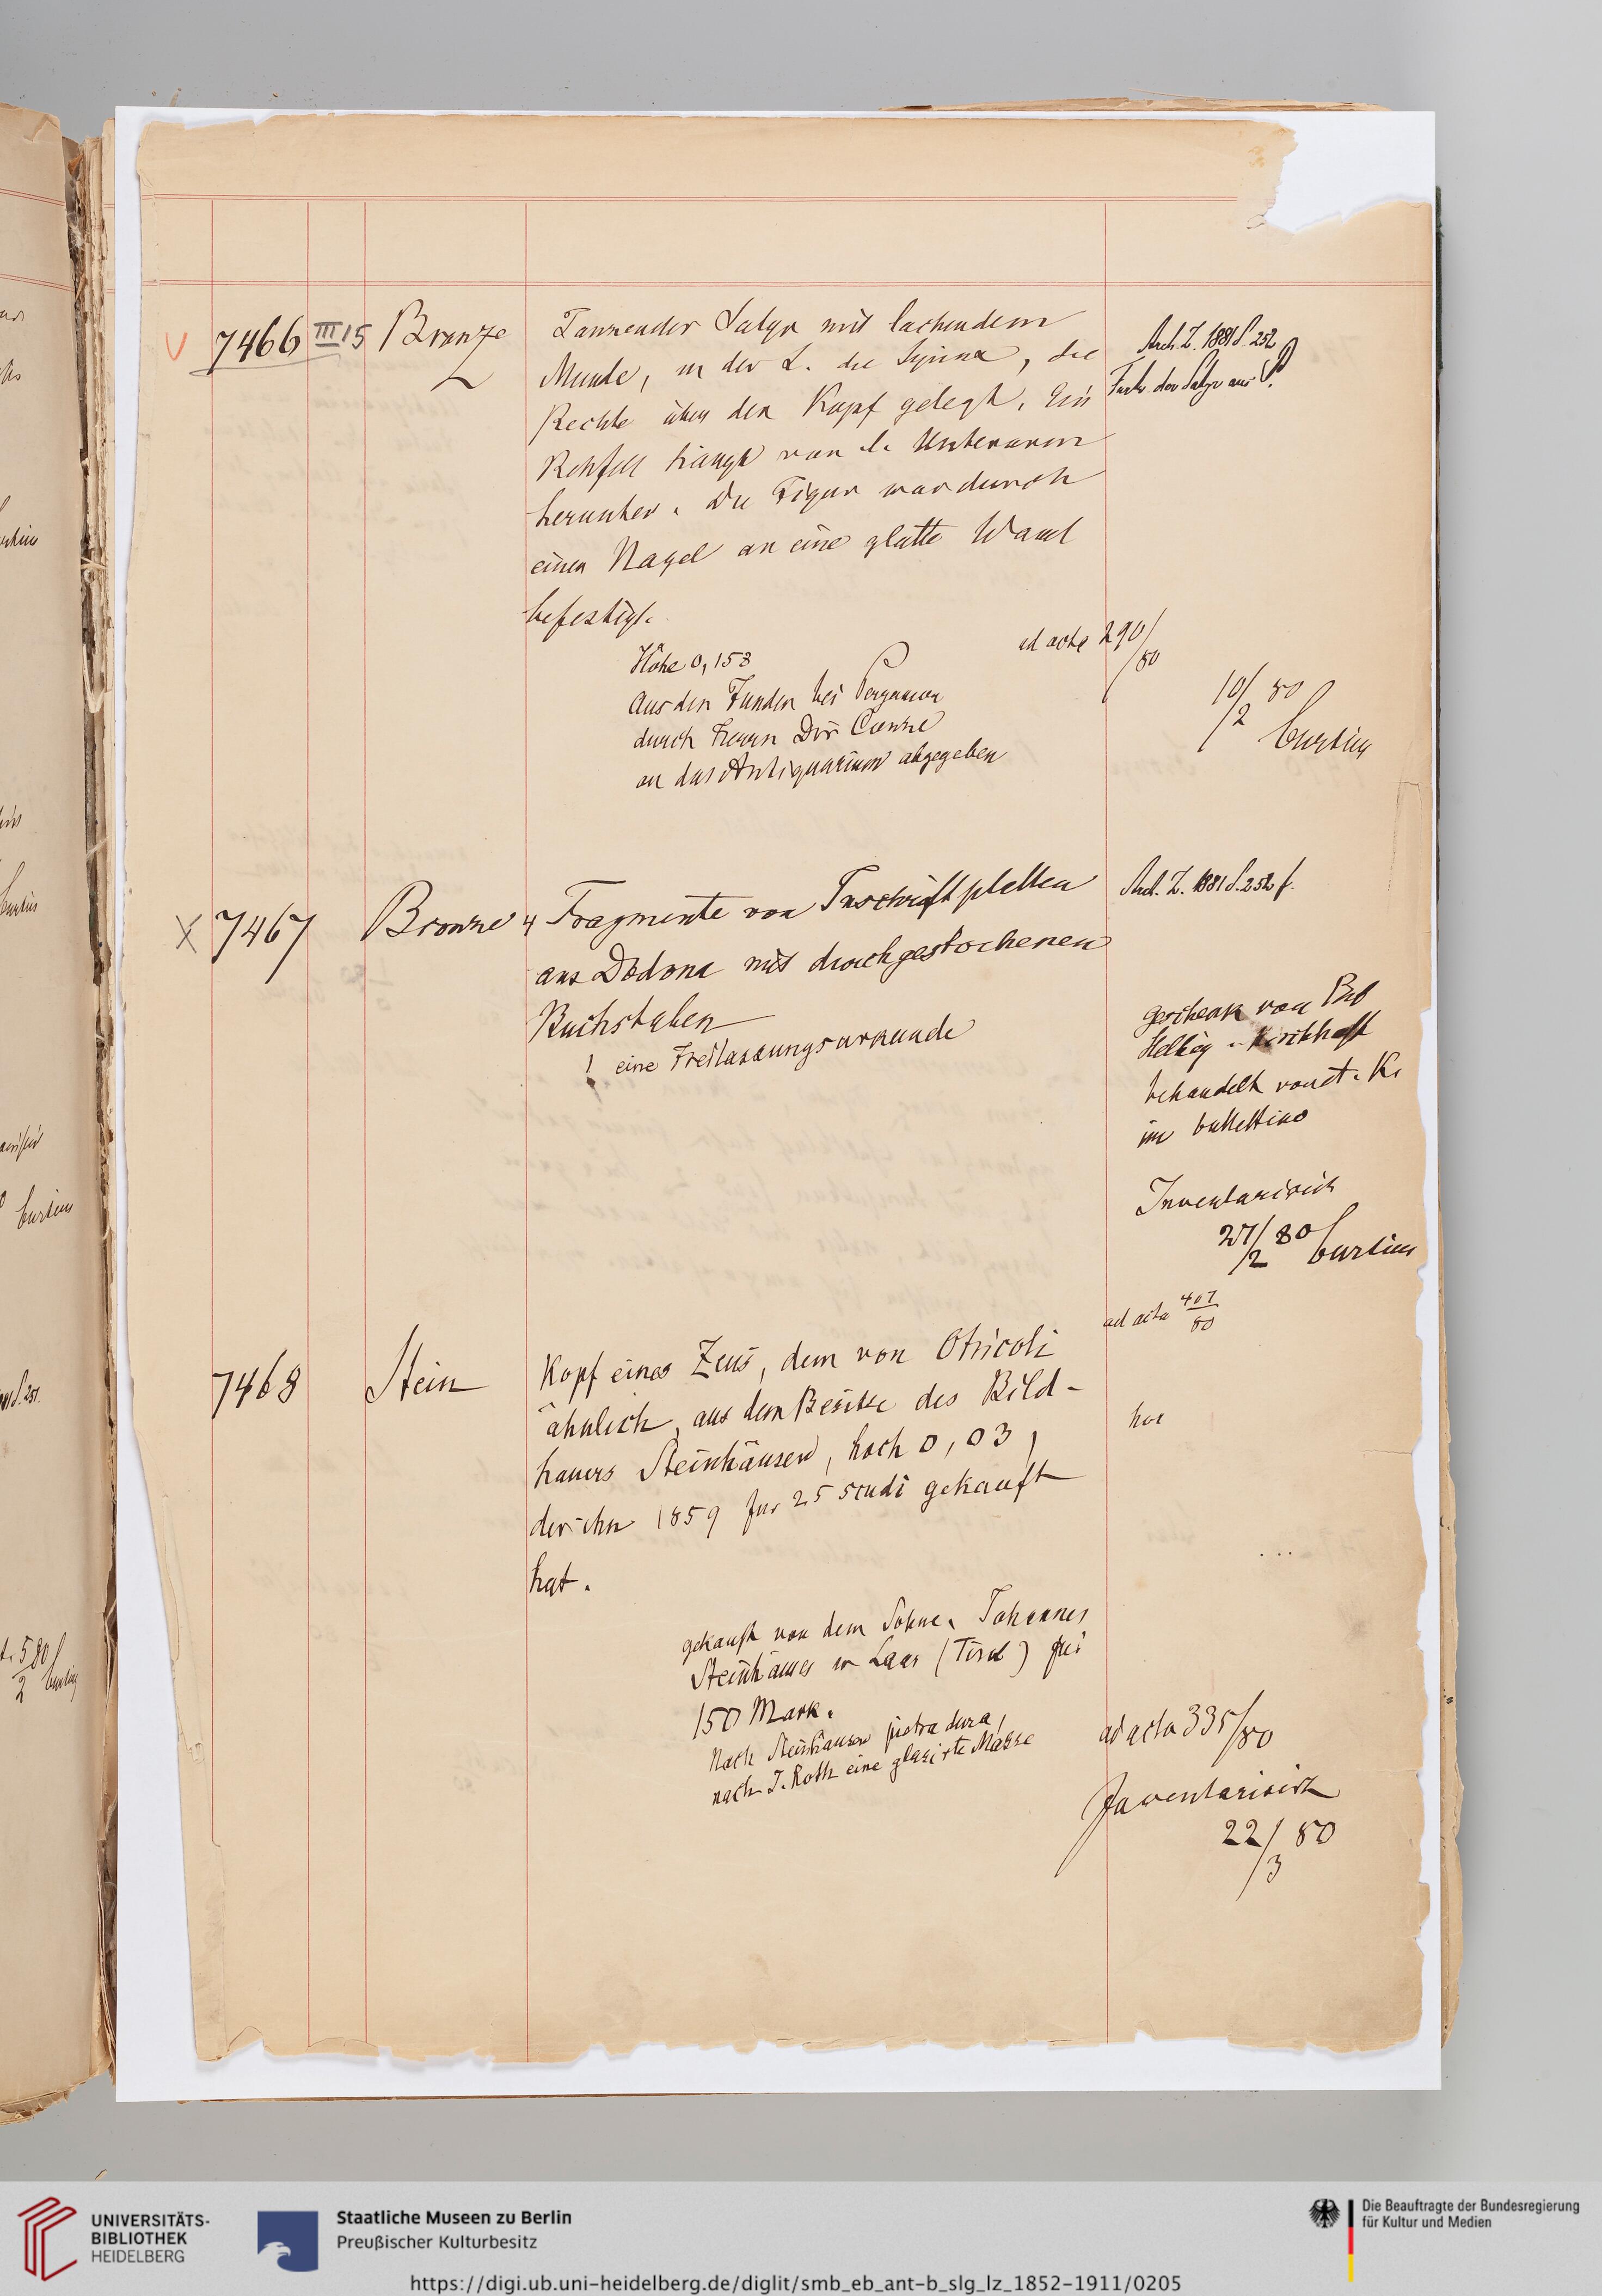 7466 III 15 Bronze
Tanzender Satyr mit lachendem
Munde, in der L. die Syrinx, die
Rechte über den Kopf gelegt. Ein
Rehfell hängt vom l. Unterarm
herunter. Die Figur war durch
einen Nagel an eine glatte Wand
befestigt.
Arch. Z. 1881 S. 252
Höhe 0,153
Aus den Funden bei Pergamon
durch Herrn Dir Conze
an das Antiquarium abgegeben
ad acta 290/80
10/2 80
Curtius
X 7467 Bronze
4 Fragmente von Inschriftplatten
aus Dodona mit durchgestochenen
Buchstaben
! eine Freilassungsurkunde
Arch. Z. 1881 S. 252 f.
Geschenk von Prof
Helbig Kirchhoff
behandelt von
im bullettino
Inventarisirt
27/2 80 Curtius
ad acta 407/80
7468 Stein
Kopf eines Zeus, dem von Otricoli
ähnlich, aus dem Besitze des Bild-
hauers Steinhäuser, hoch 0,03,
der ihn 1859 für 25 scudi gekauft
hat.
gekauft von dem Sohne, Johannes
Steinhäuser in Laas (Tirol) für
150 Mark.
Nach Steinhäuser pietra dura,
nach J. Roth eine glasirte Masse
ad acta 335/80
Inventarisirt
22/3 80
Curtius
Curtius
UNIVERSITÄTS-
BIBLIOTHEK
HEIDELBERG
Staatliche Museen zu Berlin
Preußischer Kulturbesitz
Die Beauftragte der Bundesregierung
für Kultur und Medien
https://digi.ub.uni-heidelberg.de/diglit/smb_eb_ant-b_slg_lz_1852-1911/0205